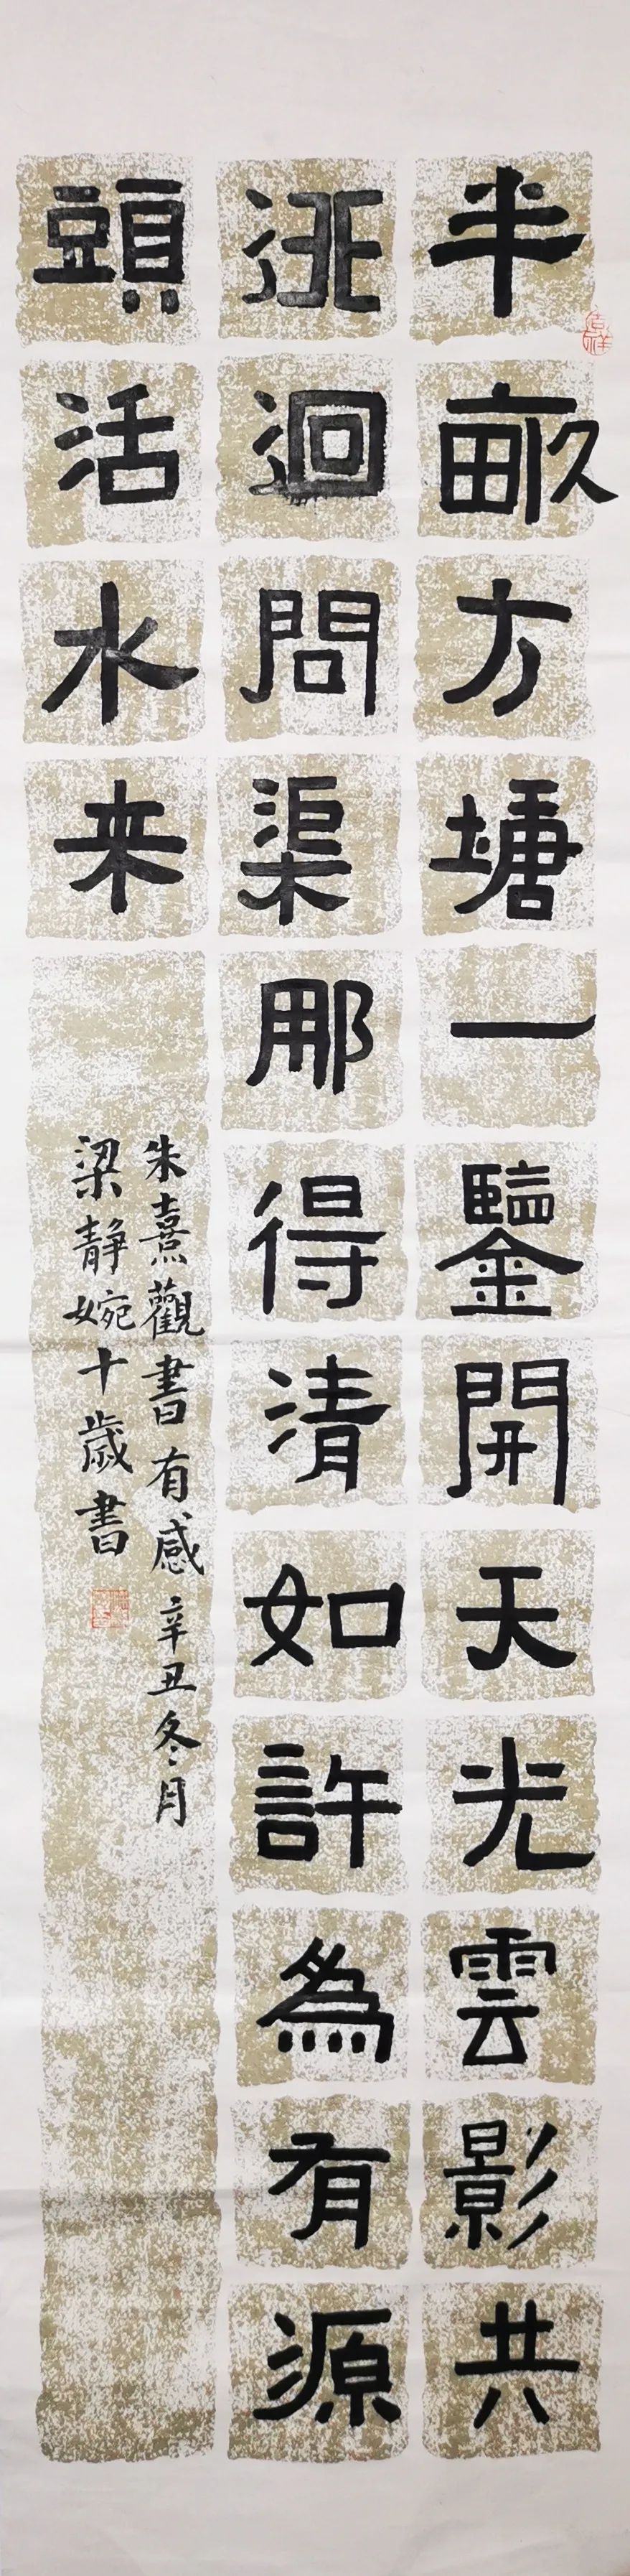 半畝方塘一鑒開天光雲影共
逃迴問渠那得清如許為有源
頭活水来
朱熹觀書有感辛丑冬月
梁静婉十歲書
吉祥